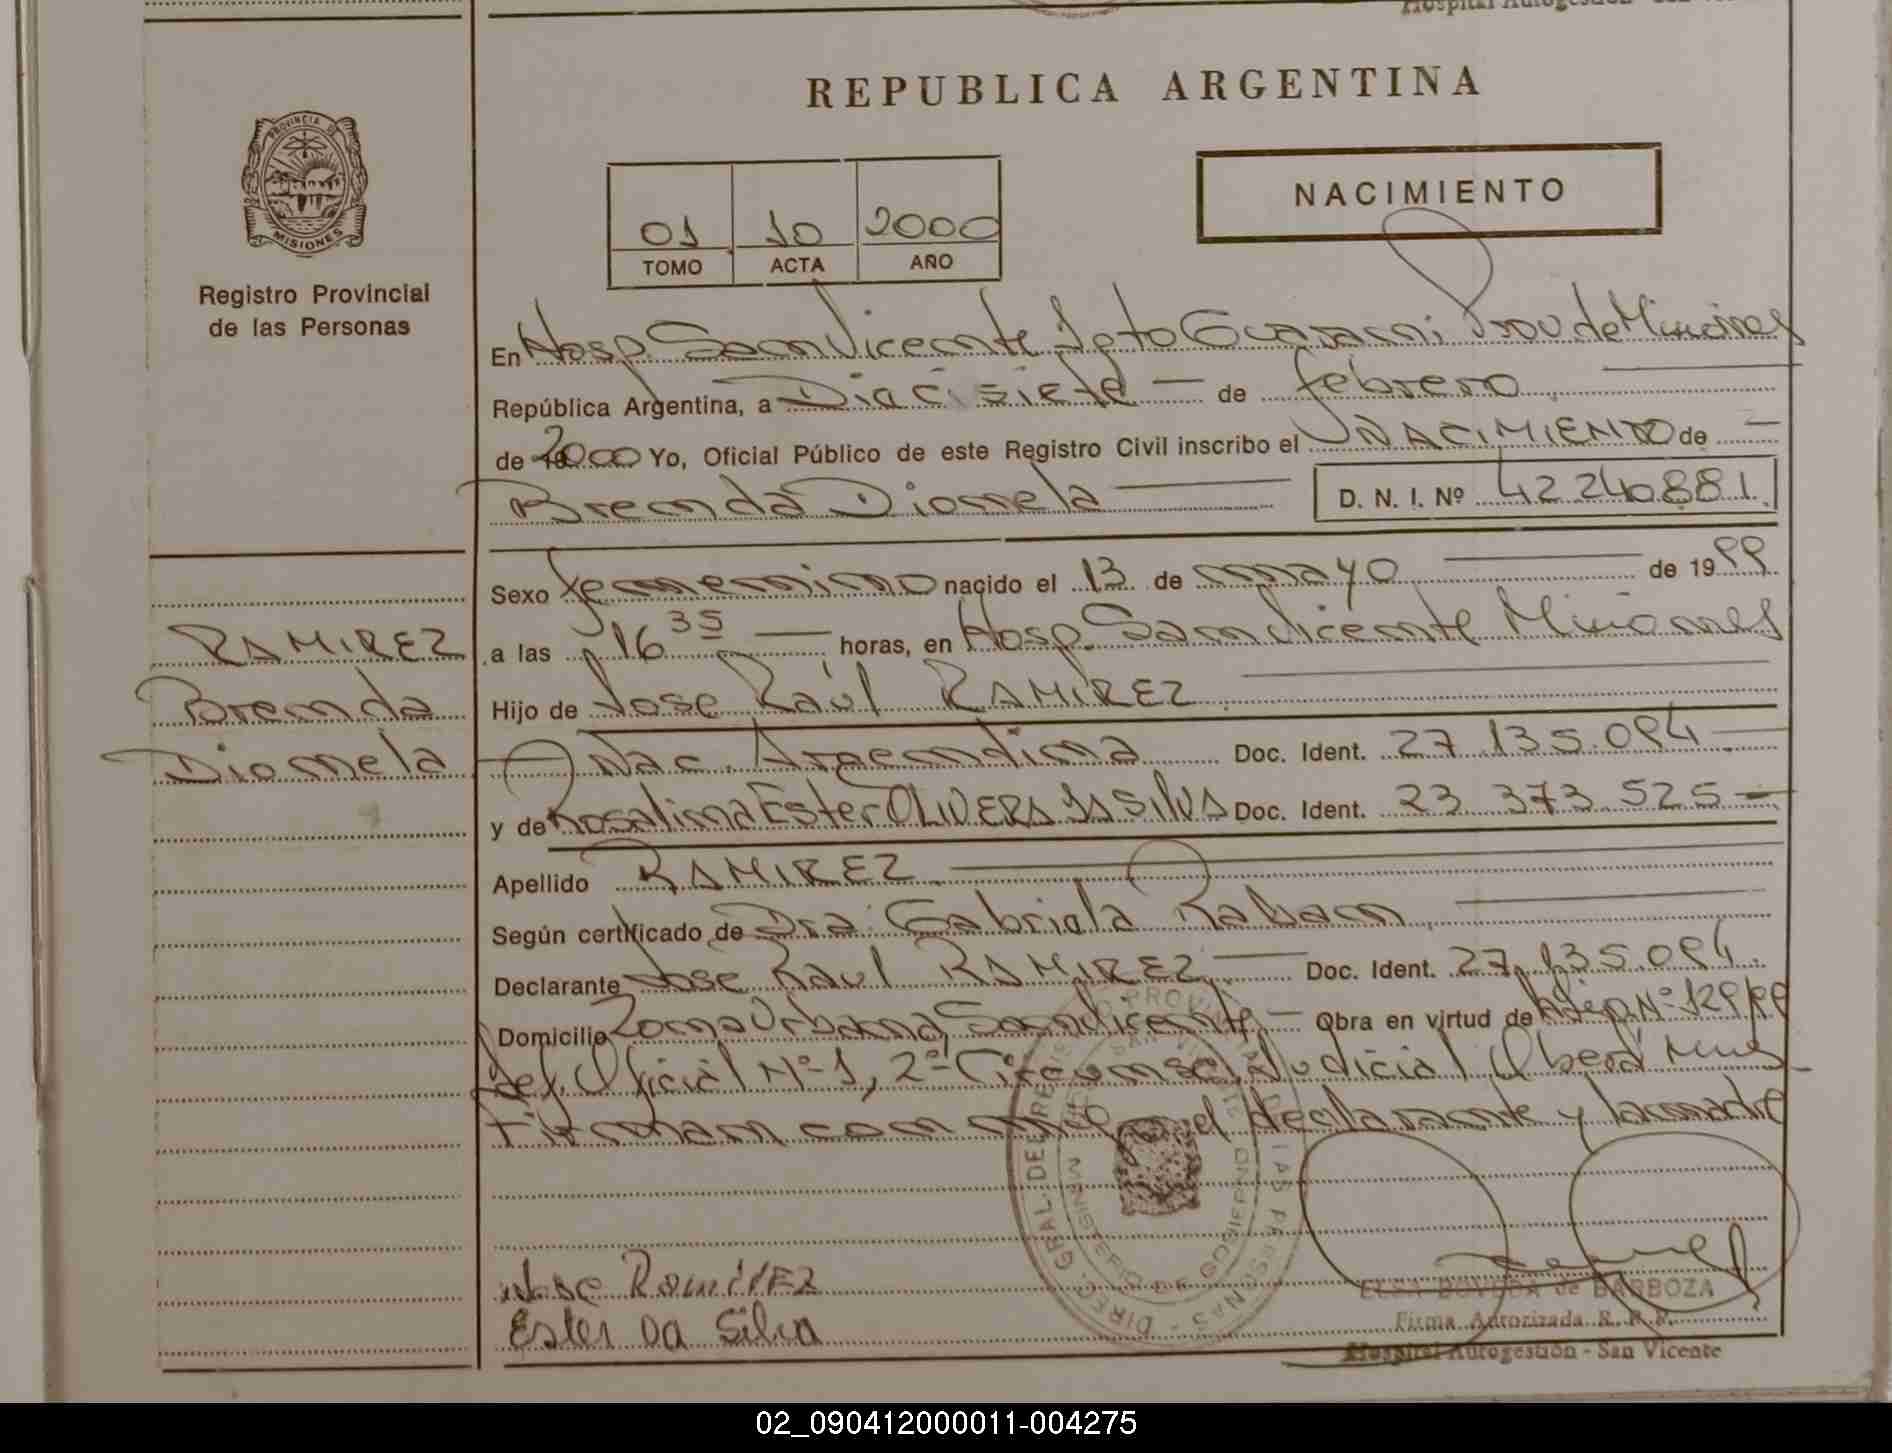 PROVINCIA DE
MISIONES
Registro Provincial
de las Personas
RAMIREZ
Brenda
Diomela
REPUBLICA ARGENTINA
01 10 2000
TOMO ACTA AÑO
NACIMIENTO
En Hosp. San Vicente Dpto Guarani Prov de Misiones
República Argentina, a Diecisiete — de febrero
de 2000 Yo, Oficial Público de este Registro Civil inscribo el NACIMIENTO de —
Brenda Diomela D. N. I. Nº 42240881
Sexo femenino nacido el 13 de mayo de 1999
a las 16 35 — horas, en Hosp. San Vicente Misiones
Hijo de Jose Raúl RAMIREZ
Nac. Argentina Doc. Ident. 27.135.094
y de Rosalina Ester OLIVERA DA SILVA Doc. Ident. 23 373 525 —
Apellido RAMIREZ
Según certificado de Dra. Gabriela Raban
Declarante Jose Raul RAMIREZ — Doc. Ident. 27.135.094.
Domicilio Zona Urbana San Vicente — Obra en virtud de Nº 129/99
Def. Oficial Nº 1, 2ª Circunsc. Judicial Oberá Mnes
Firman con migo el declarante y la madre
DIREC. GRAL. DE REGISTRO PROVINCIAL DE LAS PERSONAS
MINISTERIO DE GOBIERNO
Jose Ramirez
Ester Da Silva
ELSA BOVEDA de BARBOZA
Firma Autorizada R. P. P.
Hospital Autogestión - San Vicente
02_090412000011-004275